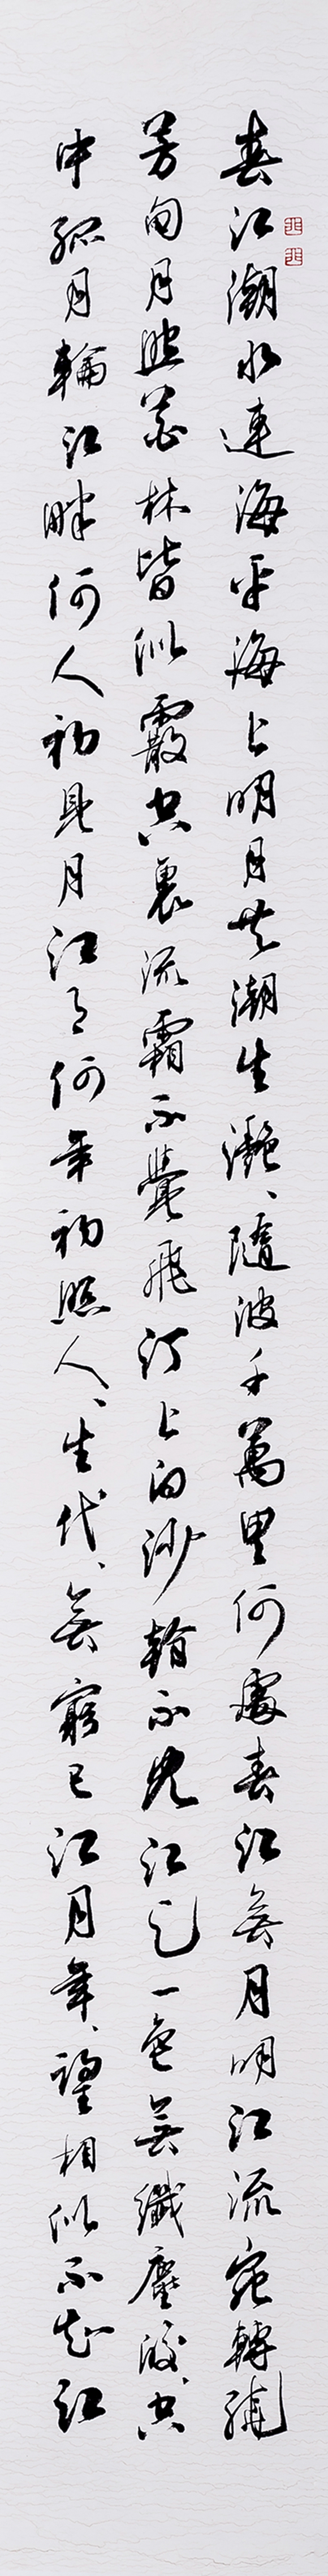 春江潮水連海平海上明月共潮生灩、隨波千萬里何處春江無月明江流宛轉繞
芳甸月照花林皆似霰空裏流霜不覺飛汀上白沙看不見江天一色無纖塵皎、空
中孤月輪江畔何人初見月江月何年初照人、生代、無窮已江月年、望相似不知江